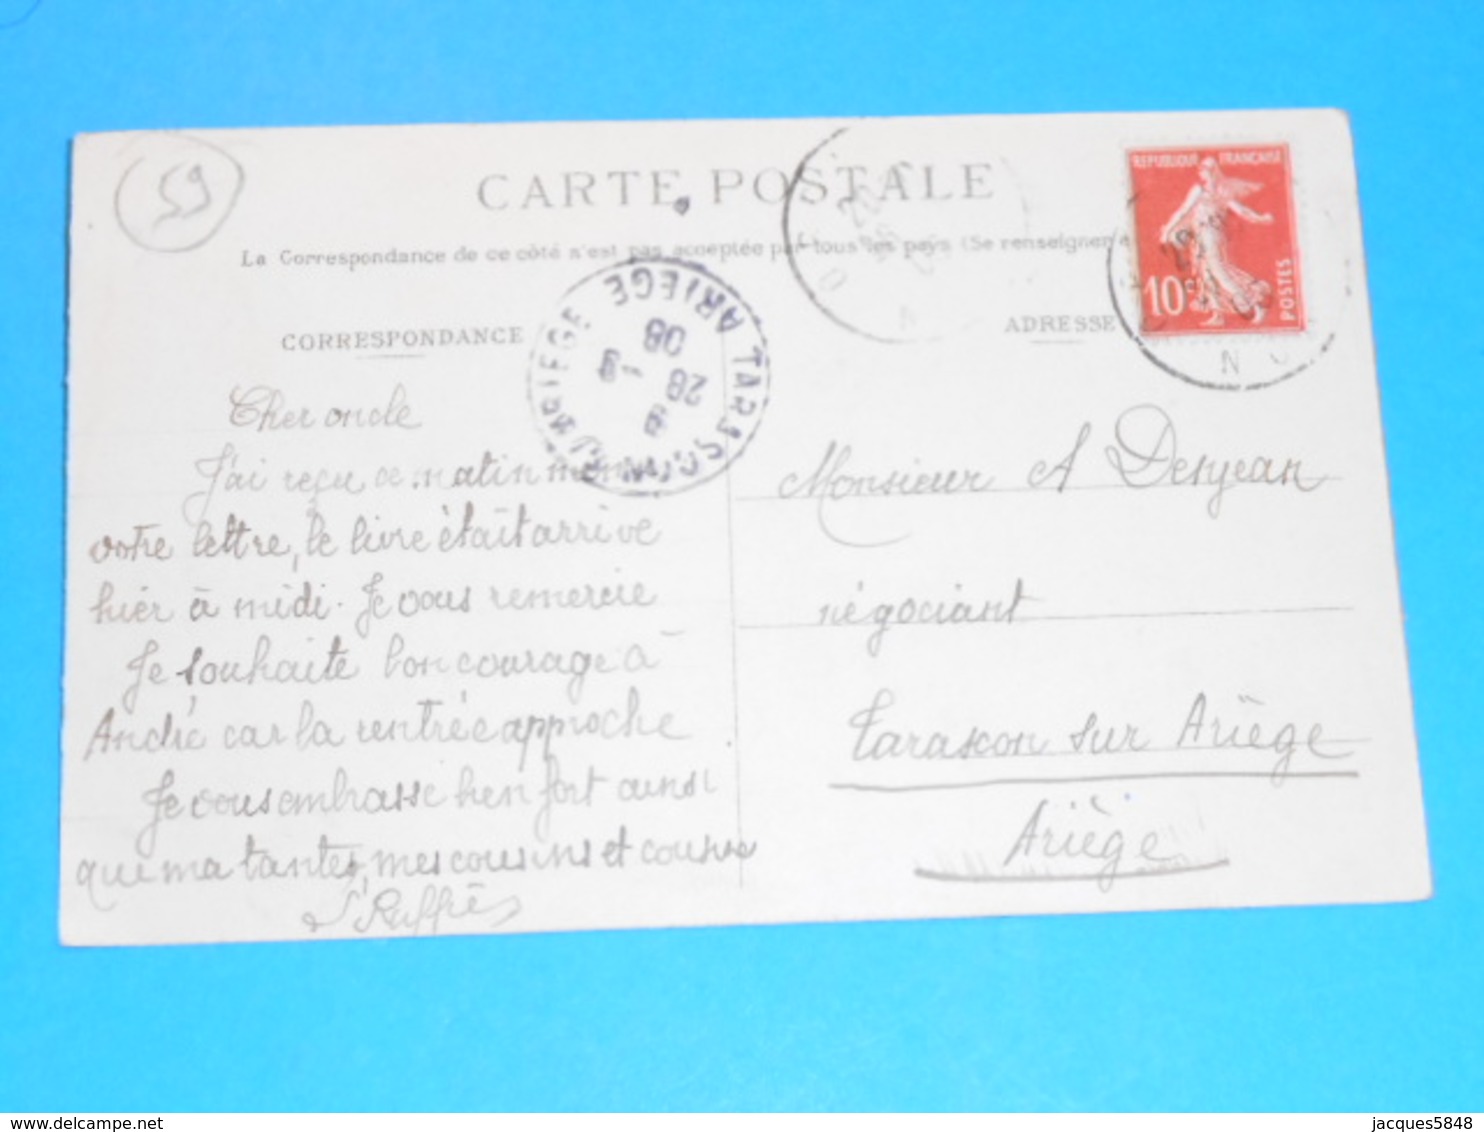 59
CARTE POSTALE
La Correspondance de ce côté n'est pas acceptée par tous les pays (Se renseigner à
CORRESPONDANCE
ADRESSE
REPUBLIQUE FRANÇAISE
10c
POSTES
TARASCON ARIEGE
ARIEGE
28 -9
08
Cher oncle
J'ai reçu ce matin même
votre lettre, le livre était arrivé
hier à midi. Je vous remercie
Je souhaite bon courage à
André car la rentrée approche
Je vous embrasse bien fort ainsi
que ma tante, mes cousins et cousine
Monsieur A Denjean
négociant
Tarascon sur Ariège
Ariège
jacques5848